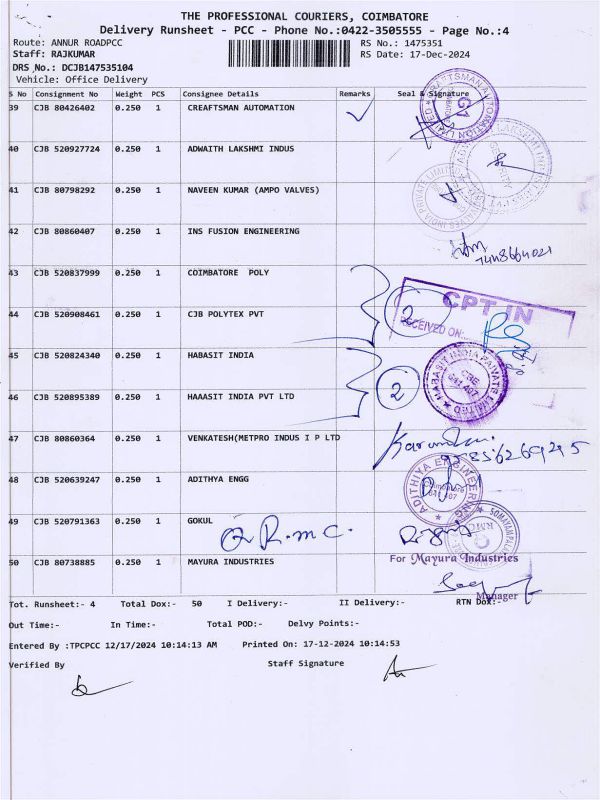 THE PROFESSIONAL COURIERS, COIMBATORE
Delivery Runsheet - PCC - Phone No.:0422-3505555 - Page No.:4
Route: ANNUR ROADPCC RS No.: 1475351
Staff: RAJKUMAR RS Date: 17-Dec-2024
DRS No.: DCJB147535104
Vehicle: Office Delivery
S No Consignment No Weight PCS Consignee Details Remarks Seal & Signature
39 CJB 80426402 0.250 1 CREAFTSMAN AUTOMATION
40 CJB 520927724 0.250 1 ADWAITH LAKSHMI INDUS
SECURITY
41 CJB 80798292 0.250 1 NAVEEN KUMAR (AMPO VALVES)
42 CJB 80860407 0.250 1 INS FUSION ENGINEERING
43 CJB 520837999 0.250 1 COIMBATORE POLY
CPT IN
44 CJB 520908461 0.250 1 CJB POLYTEX PVT 2
RECEIVED ON:
45 CJB 520824340 0.250 1 HABASIT INDIA
HABASIT INDIA PRIVATE LIMITED
CBE
46 CJB 520895389 0.250 1 HAAASIT INDIA PVT LTD 2
47 CJB 80860364 0.250 1 VENKATESH(METPRO INDUS I P LTD
48 CJB 520639247 0.250 1 ADITHYA ENGG
ADITHIYA ENGINEERING
49 CJB 520791363 0.250 1 GOKUL R.m.c.
RMC
50 CJB 80738885 0.250 1 MAYURA INDUSTRIES
For Mayura Industries
Manager
Tot. Runsheet:- 4 Total Dox:- 50 I Delivery:- II Delivery:- RTN Dox:-
Out Time:- In Time:- Total POD:- Delvy Points:-
Entered By :TPCPCC 12/17/2024 10:14:13 AM Printed On: 17-12-2024 10:14:53
Verified By Staff Signature